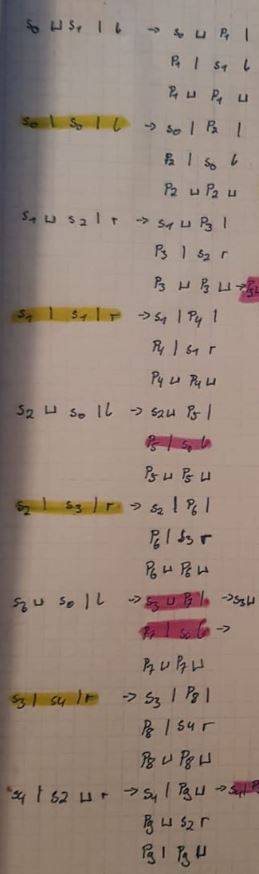 s₀ ⊔ s₁ | l → s₀ ⊔ p₁ |
p₁ | s₁ l
p₁ ⊔ p₁ ⊔
s₀ | s₀ | l → s₀ | p₂ |
p₂ | s₀ l
p₂ ⊔ p₂ ⊔
s₁ ⊔ s₂ | r → s₁ ⊔ p₃ |
p₃ | s₂ r
p₃ ⊔ p₃ ⊔ →
s₁ | s₁ | r → s₁ | p₄ |
p₄ | s₁ r
p₄ ⊔ p₄ ⊔
s₂ ⊔ s₀ | l → s₂ ⊔ p₅ |
p₅ | s₀ l
p₅ ⊔ p₅ ⊔
s₂ | s₃ | r → s₂ | p₆ |
p₆ | s₃ r
p₆ ⊔ p₆ ⊔
s₃ ⊔ s₀ | l → s₃ ⊔ p₇ | → s₃ ⊔
p₇ | s₀ l →
p₇ ⊔ p₇ ⊔
s₃ | s₄ | r → s₃ | p₈ |
p₈ | s₄ r
p₈ ⊔ p₈ ⊔
s₄ | s₂ ⊔ r → s₄ | p₉ ⊔ → s₄ |
p₉ ⊔ s₂ r
p₉ | p₉ ⊔